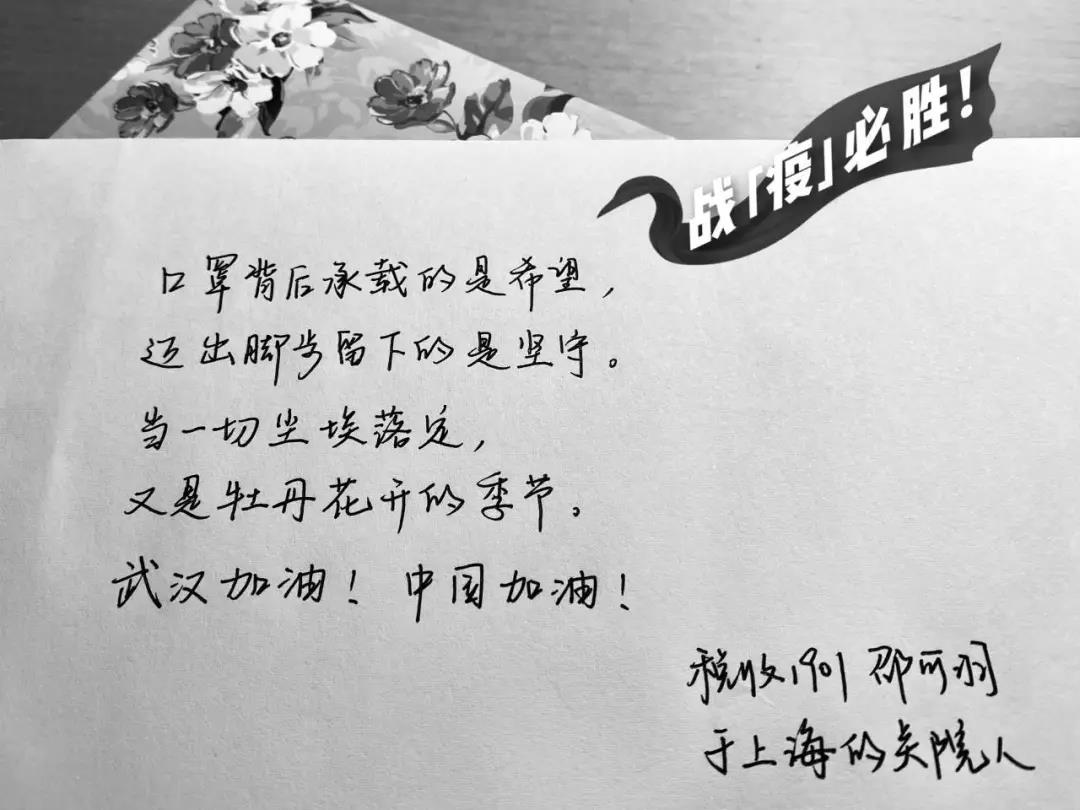 战「疫」必胜！
口罩背后承载的是希望，
迈出脚步留下的是坚守。
当一切尘埃落定，
又是牡丹花开的季节。
武汉加油！ 中国加油！
税收1901 邵可羽
于上海的吴院人